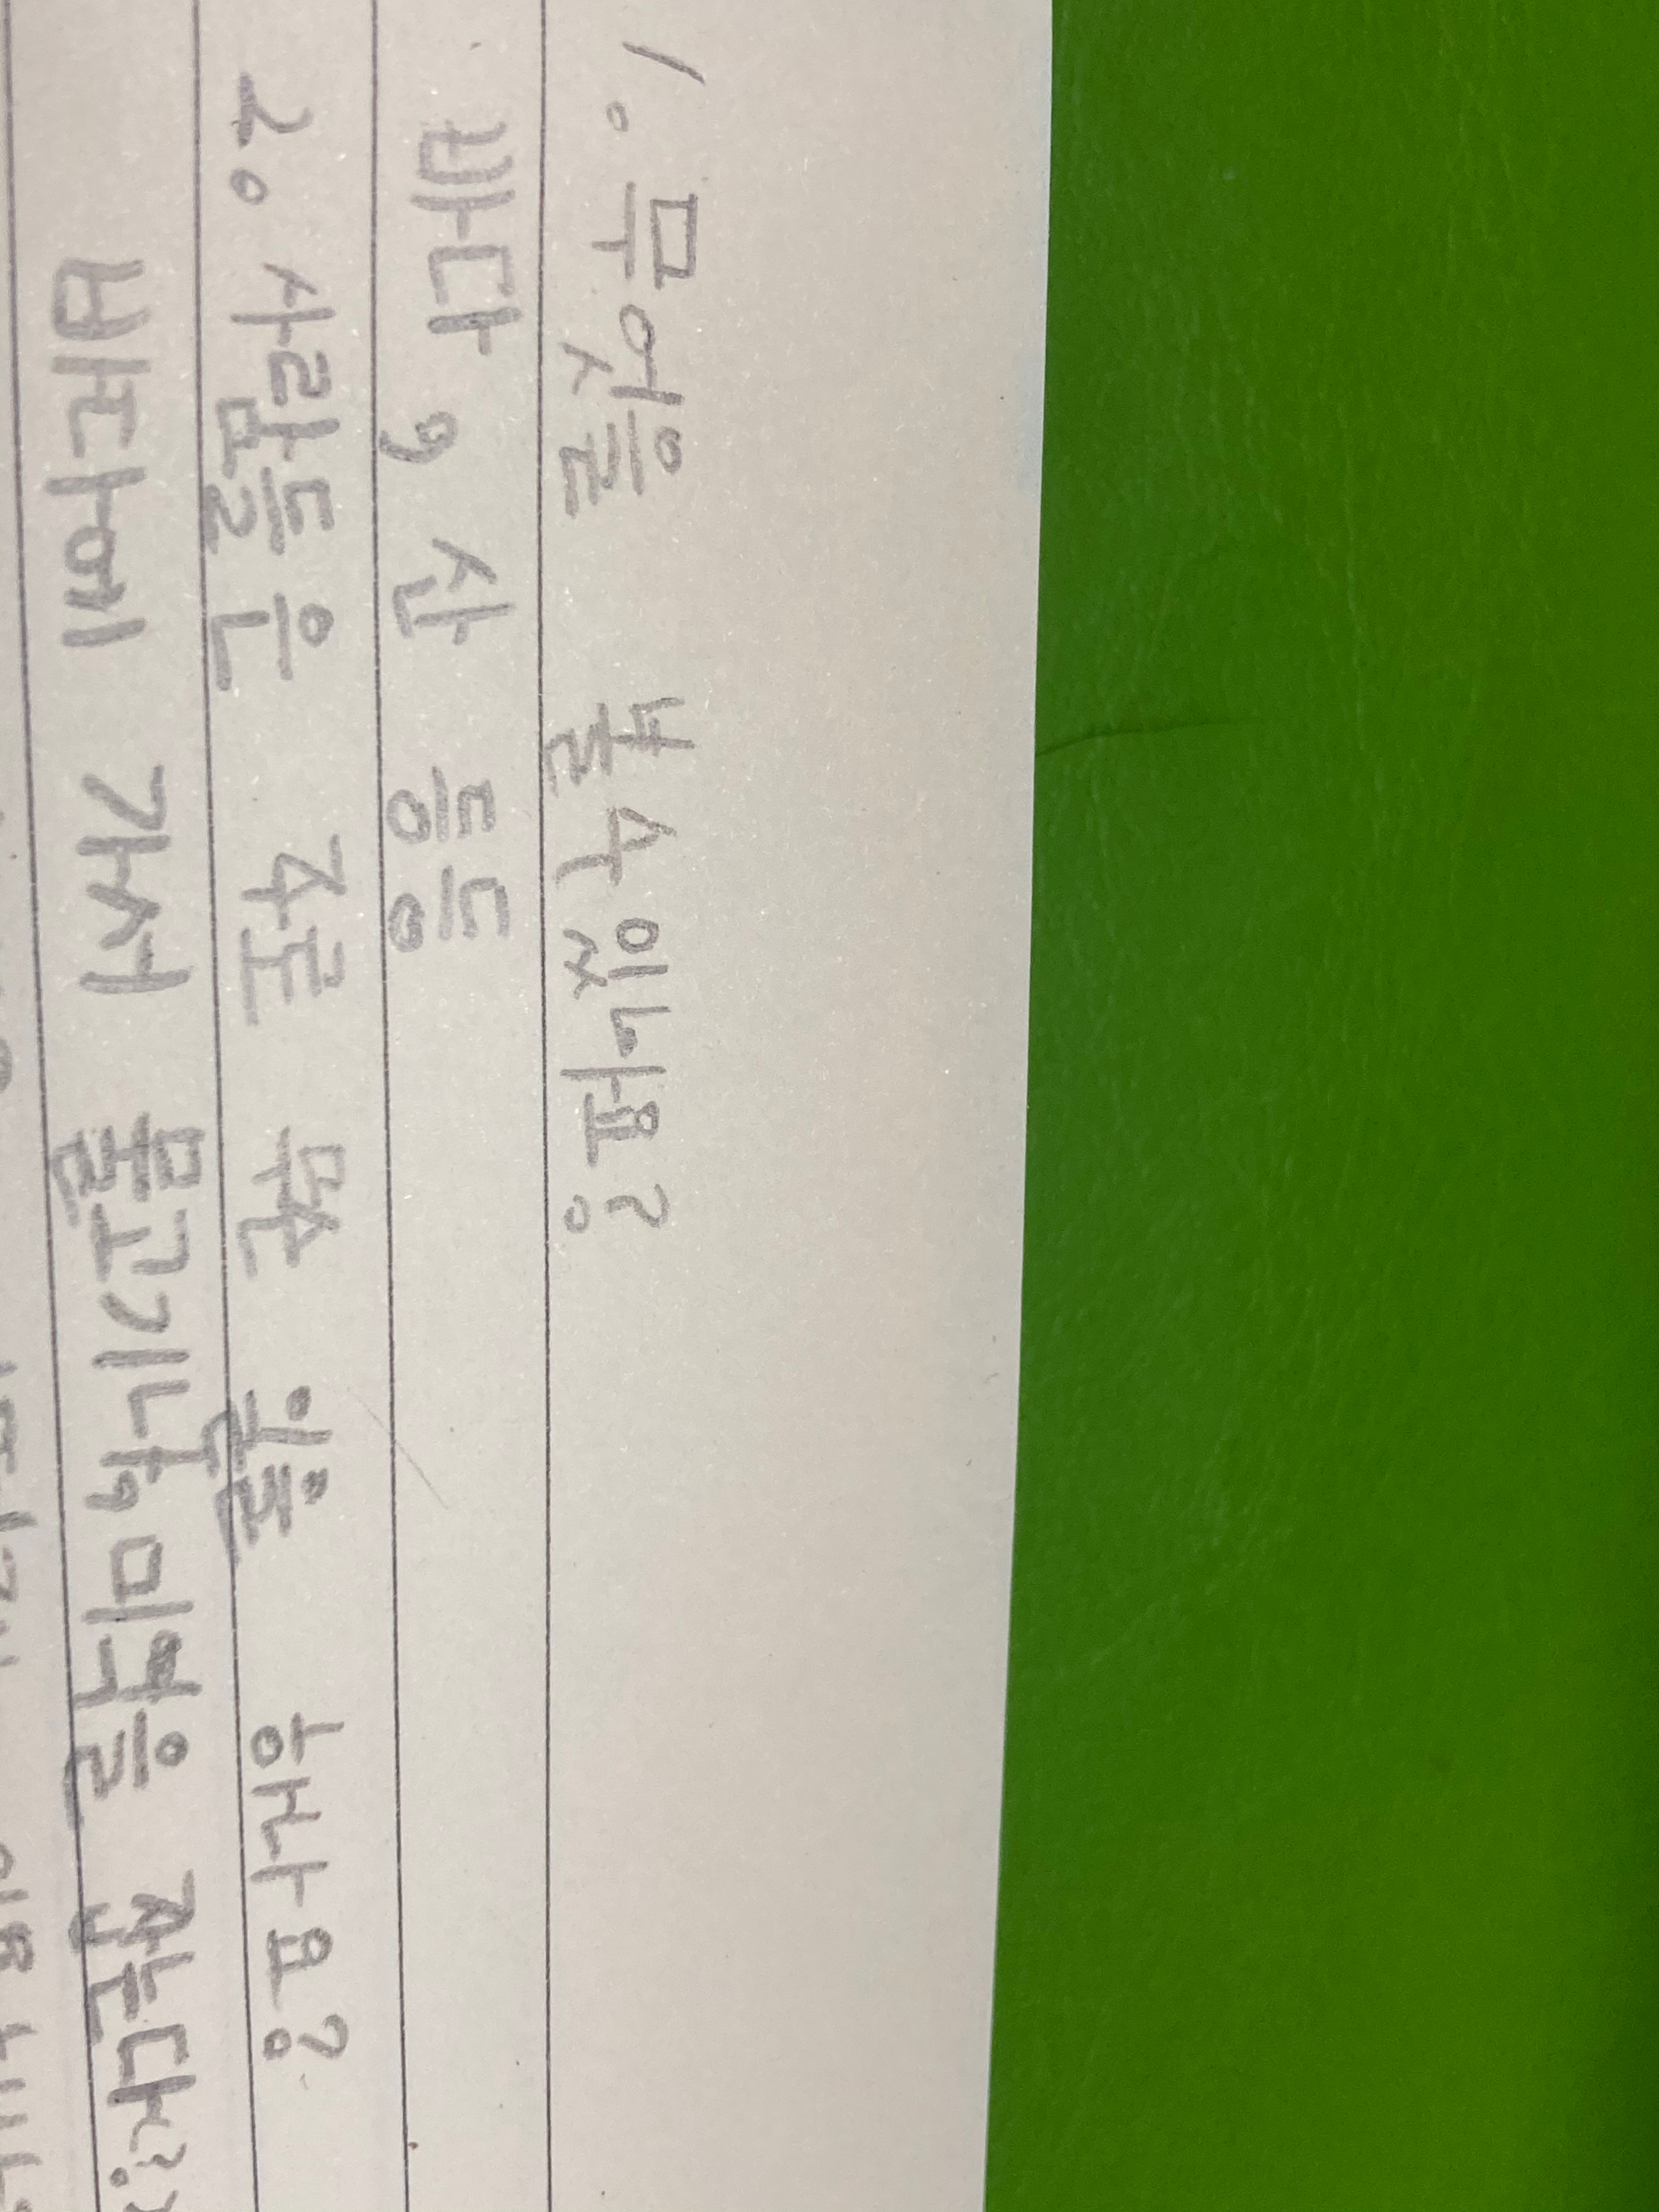 1. 무엇을 볼수있나요?
바다, 산 등등
2. 사람들은 주로 무슨 일을 하나요?
바다에 가서 물고기나, 미역을 잡는다